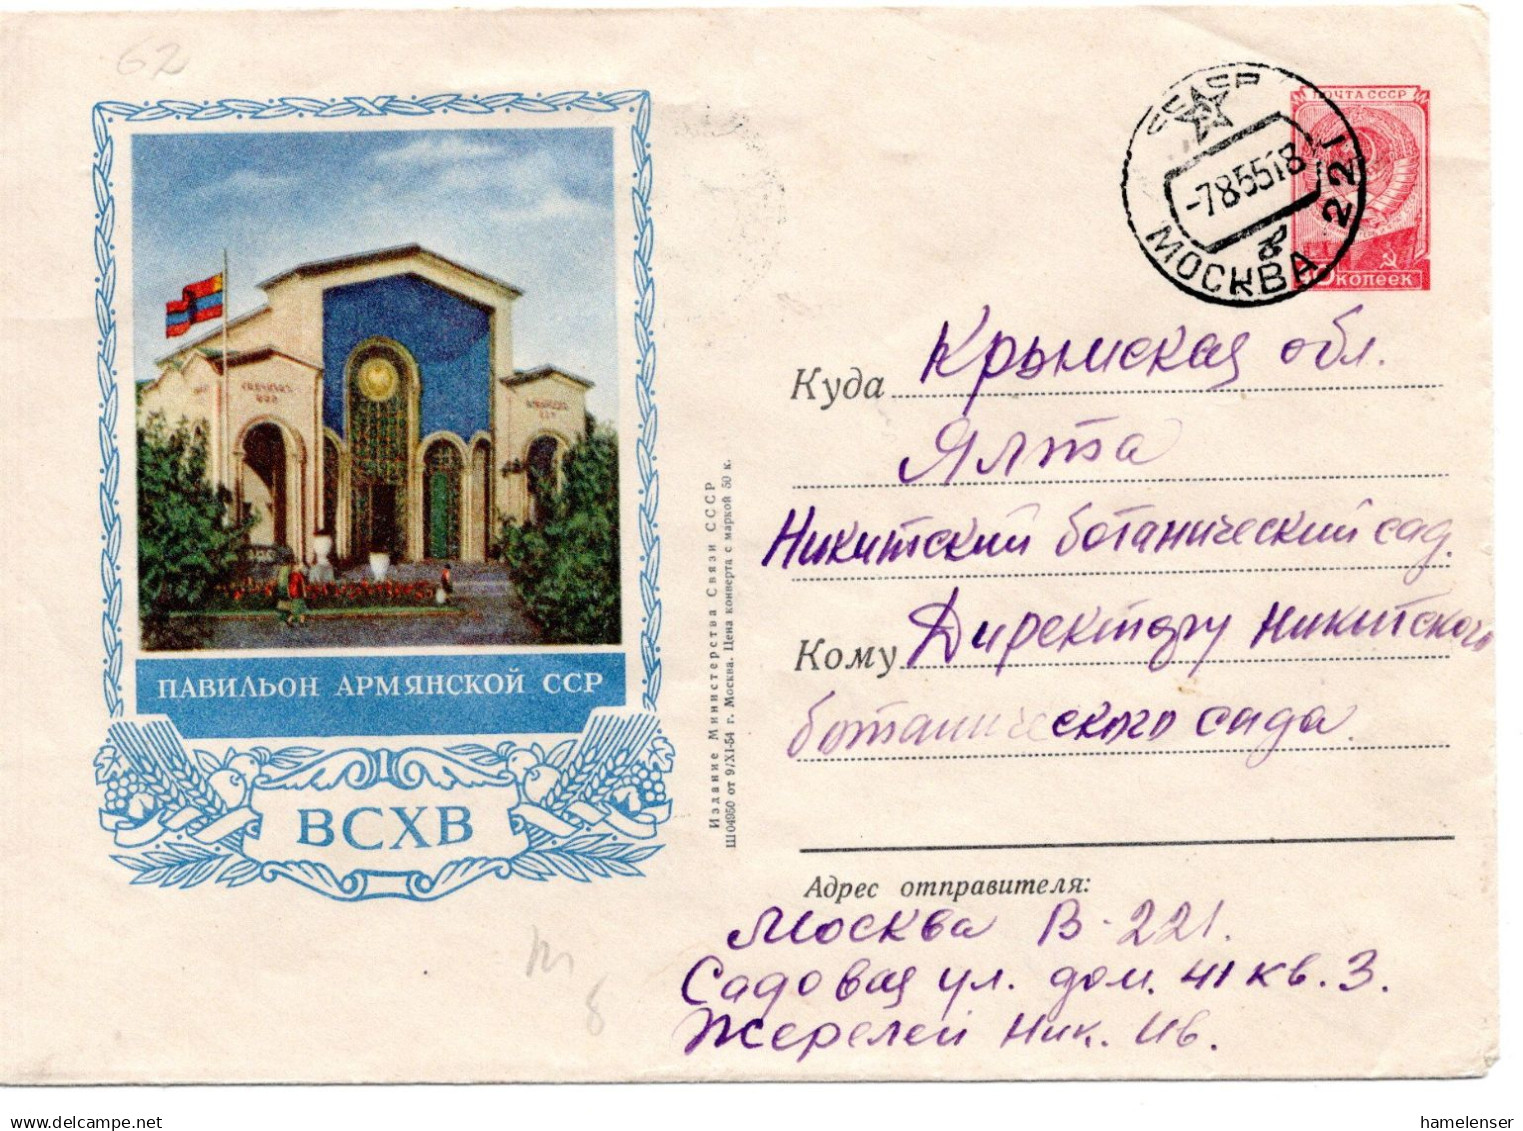 62
ПОЧТА СССР
СССР
-785518
221
МОСКВА
КОПЕЕК
Куда Крымская обл.
Ялта
Никитский ботанический сад.
Кому Директору Никитского
ботанического сада.
ПАВИЛЬОН АРМЯНСКОЙ ССР
ВСХВ
Издание Министерства Связи СССР
Ш04950 от 9/XI-54 г. Москва. Цена конверта с маркой 50 к.
Адрес отправителя:
Москва В-221.
Садовая ул. дом. 41 кв. 3.
Жерелей Ник. Ив.
8
www.delcampe.net
hamelenser